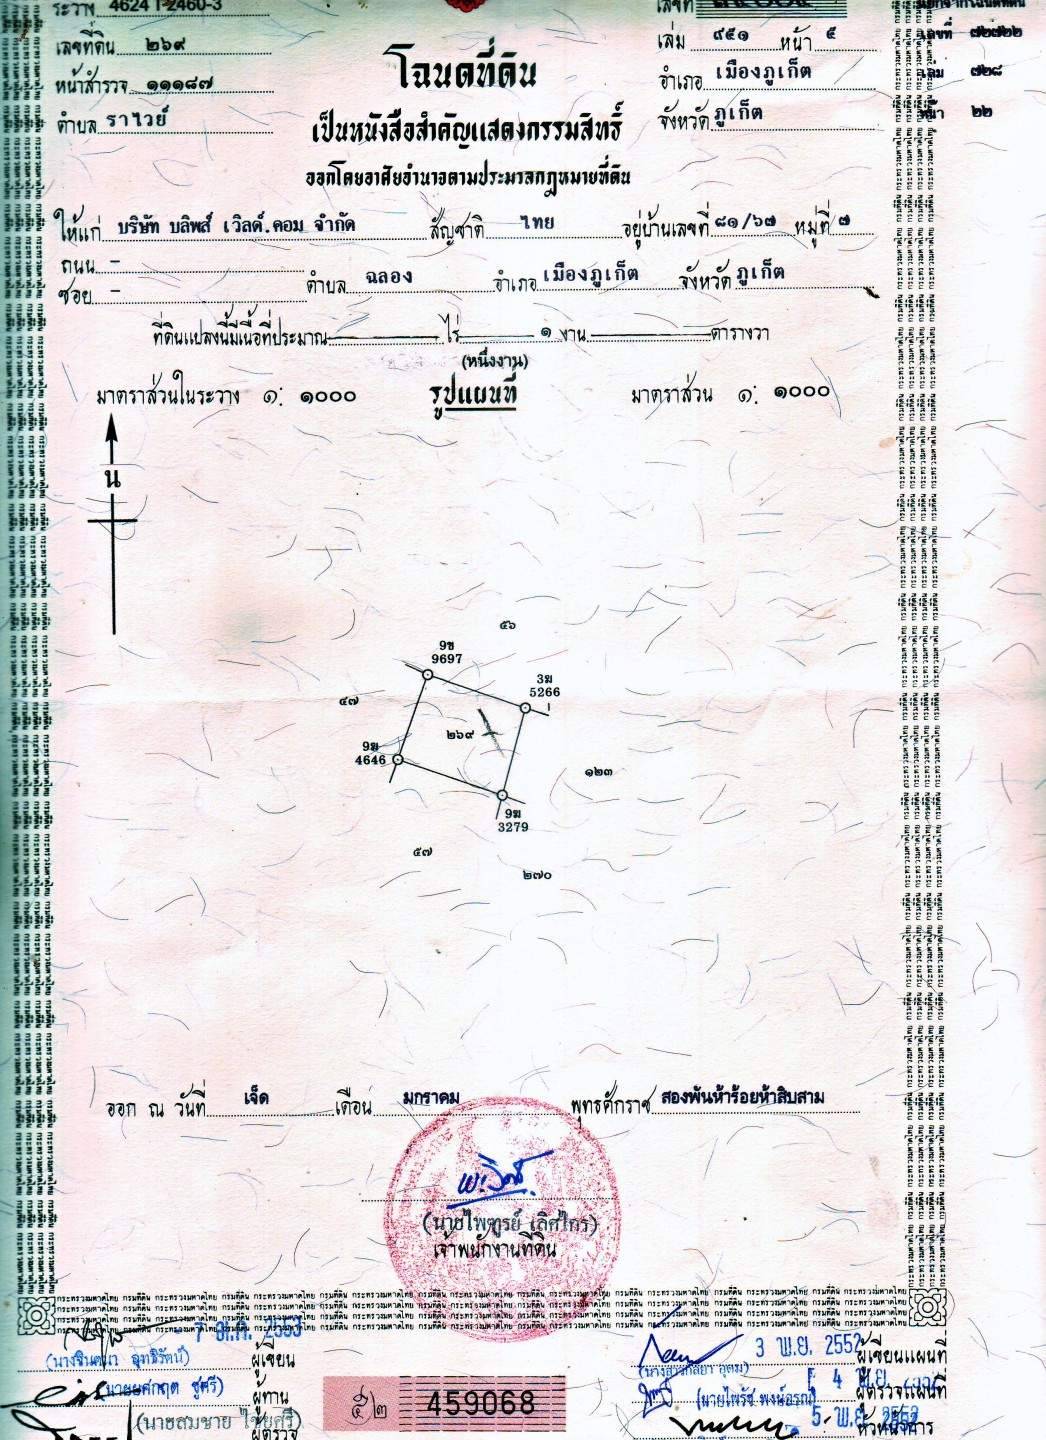 ระวาง 4624 I 2460-3
เลขที่ดิน ๒๖๙
หน้าสำรวจ ๑๑๑๘๗
ตำบล ราไวย์
โฉนดที่ดิน
เป็นหนังสือสำคัญแสดงกรรมสิทธิ์
ออกโดยอาศัยอำนาจตามประมวลกฎหมายที่ดิน
เลขที่
เล่ม ๙๕๑ หน้า ๕
อำเภอ เมืองภูเก็ต
จังหวัด ภูเก็ต
เลขที่ ๗๒๗๒๒
เล่ม ๗๒๘
หน้า ๒๒
ให้แก่ บริษัท บลิพส์ เวิลด์.คอม จำกัด สัญชาติ ไทย อยู่บ้านเลขที่ ๘๑/๖๗ หมู่ที่ ๗
ถนน -
ซอย - ตำบล ฉลอง อำเภอ เมืองภูเก็ต จังหวัด ภูเก็ต
ที่ดินแปลงนี้มีเนื้อที่ประมาณ ไร่ ๑ งาน ตารางวา
(หนึ่งงาน)
มาตราส่วนในระวาง ๑: ๑๐๐๐ รูปแผนที่ มาตราส่วน ๑: ๑๐๐๐
น
๕๖
9ข
9697
3ฆ
5266
๔๗
๒๖๙
9ฆ
4646
๑๒๓
9ฆ
3279
๕๗
๒๗๐
ออก ณ วันที่ เจ็ด เดือน มกราคม พุทธศักราช สองพันห้าร้อยห้าสิบสาม
(นายไพฑูรย์ เลิศไกร)
เจ้าพนักงานที่ดิน
ผู้เขียน
3 พ.ย. 2552 ผู้เขียนแผนที่
(นายยศกฤต ชูศรี) ผู้ทาน
(นายไพรัช พงษ์อรุณ) 4 พ.ย. 2552 ผู้ตรวจแผนที่
(นายสมชาย ไชยศรี) ผู้ตรวจ
๕๒ 459068
5 พ.ย. 2552 หัวหน้าการ